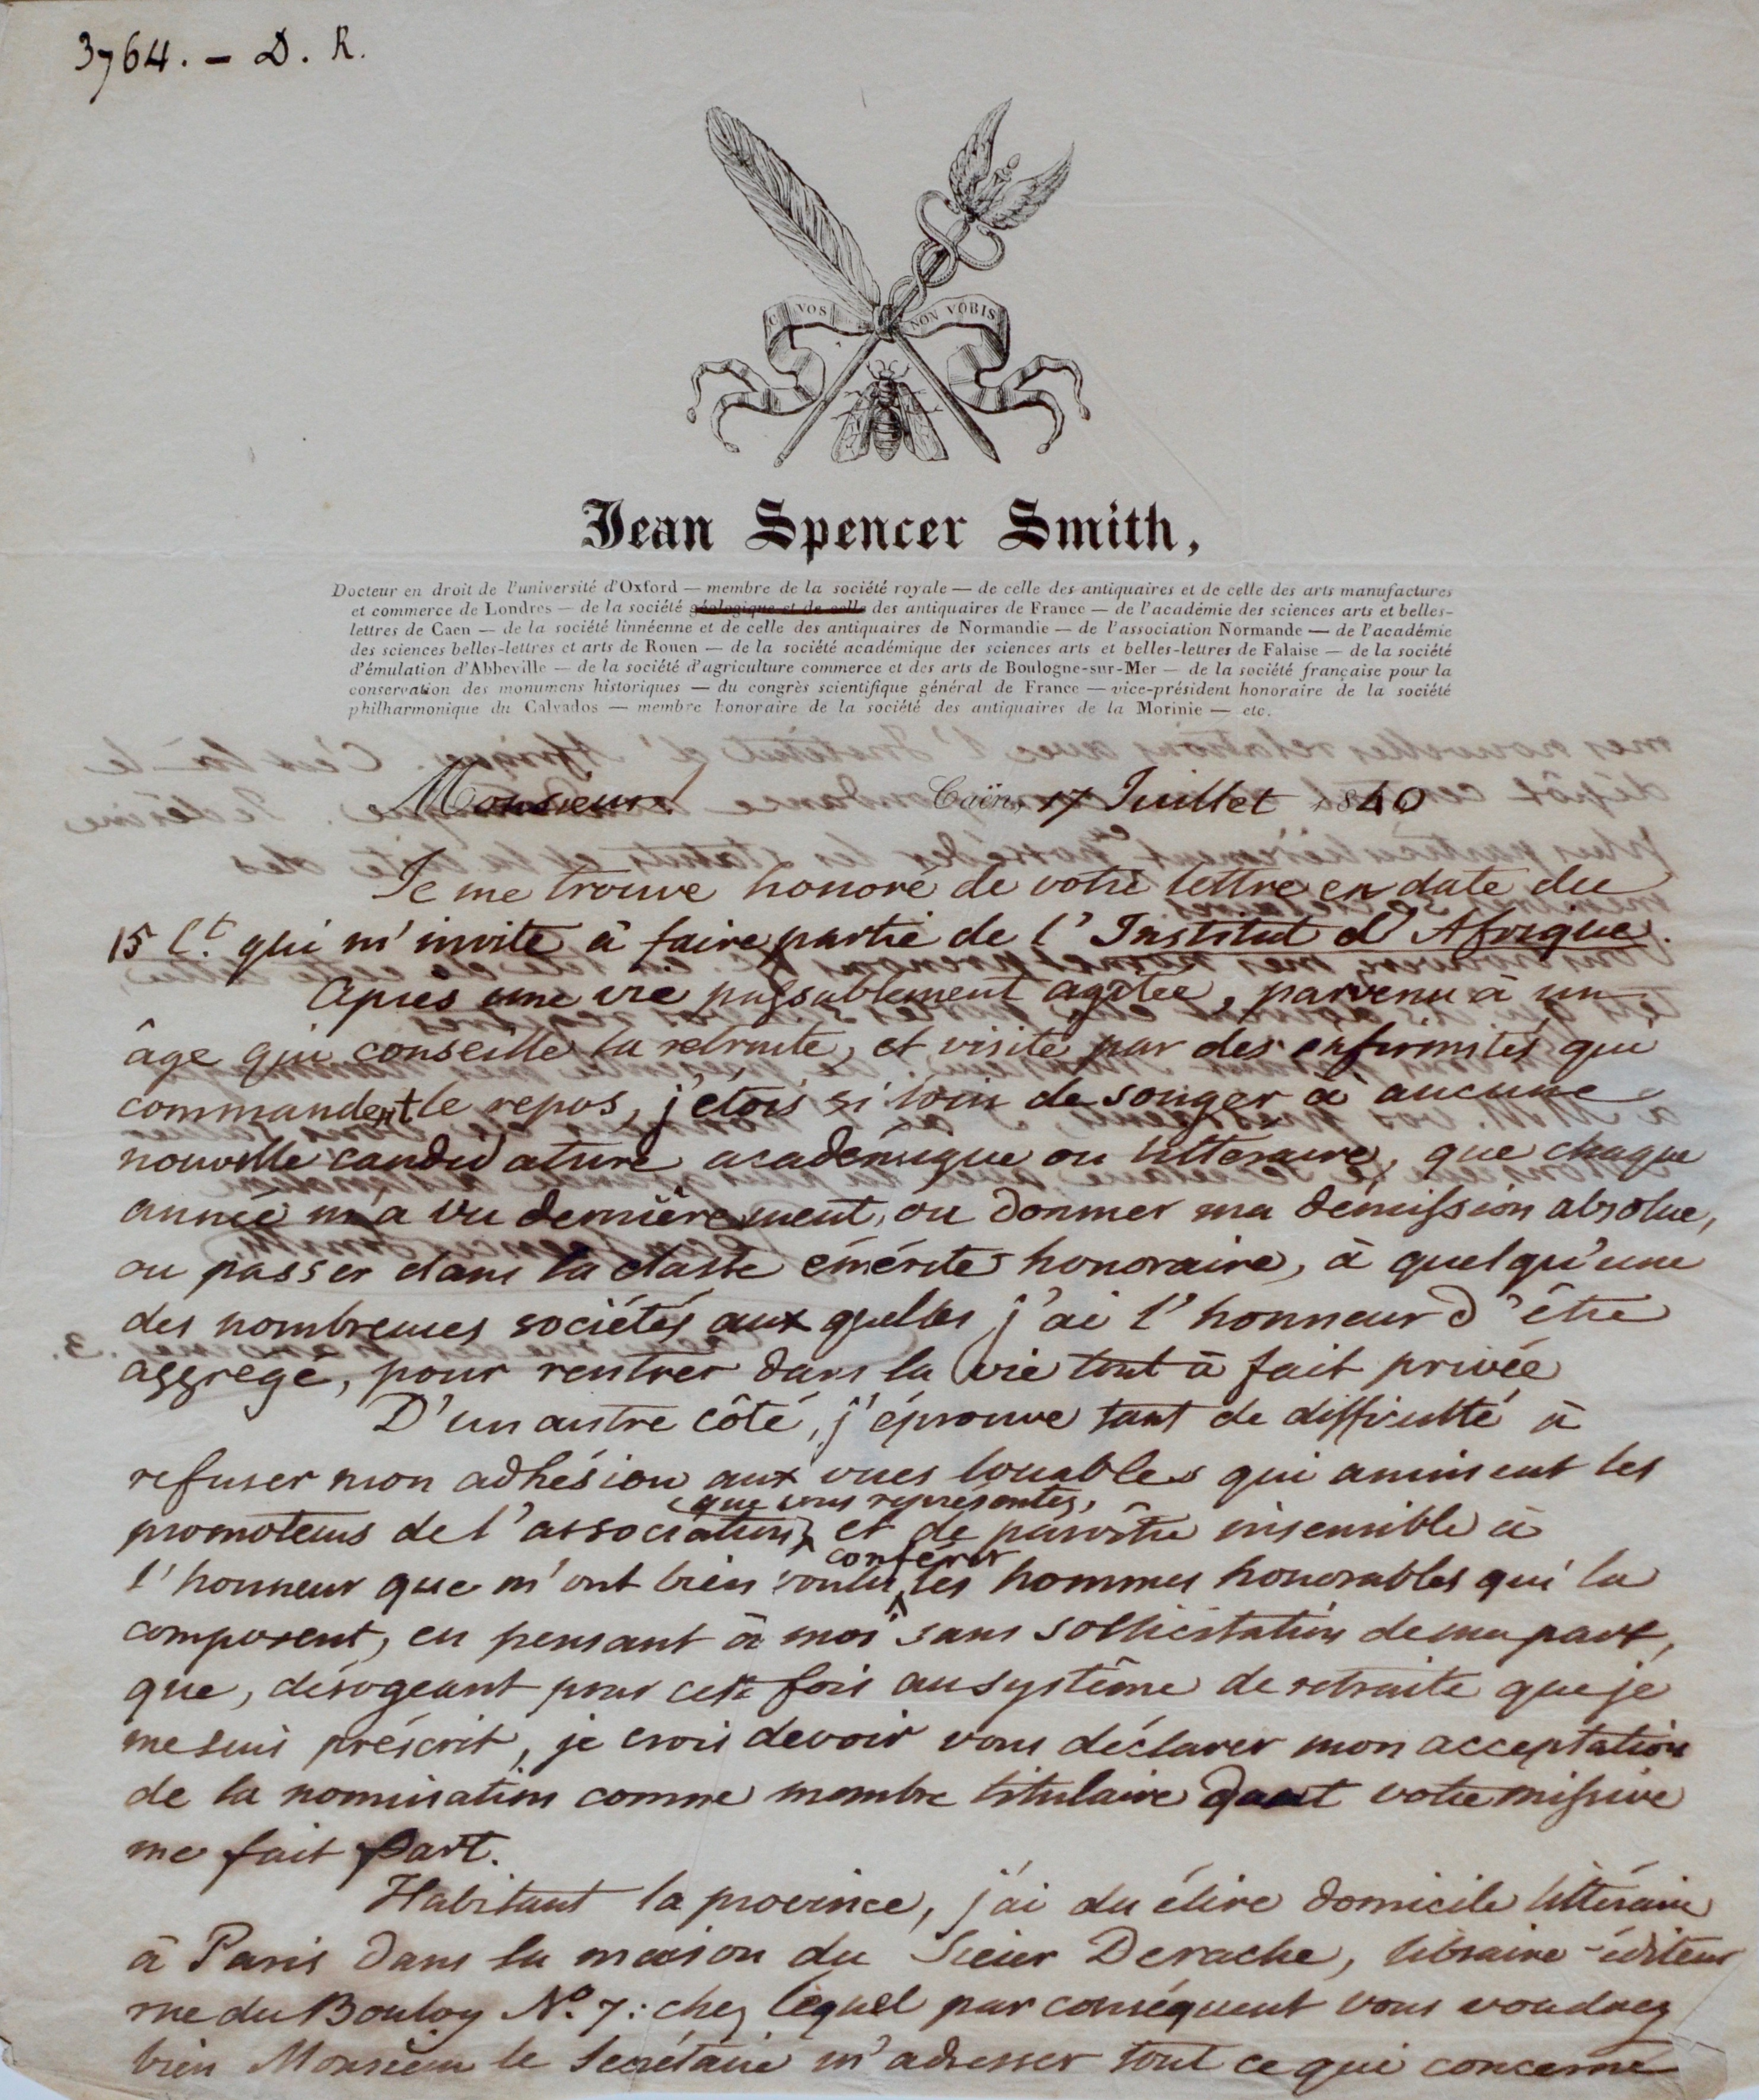 3764. - D. R.
IC VOS NON VOBIS
Jean Spencer Smith,
Docteur en droit de l'université d'Oxford — membre de la société royale — de celle des antiquaires et de celle des arts manufactures
et commerce de Londres — de la société géologique et de celle des antiquaires de France — de l'académie des sciences arts et belles-
lettres de Caen — de la société linnéenne et de celle des antiquaires de Normandie — de l'association Normande — de l'académie
des sciences belles-lettres et arts de Rouen — de la société académique des sciences arts et belles-lettres de Falaise — de la société
d'émulation d'Abbeville — de la société d'agriculture commerce et des arts de Boulogne-sur-Mer — de la société française pour la
conservation des monumens historiques — du congrès scientifique général de France — vice-président honoraire de la société
philharmonique du Calvados — membre honoraire de la société des antiquaires de la Morinie — etc.
Monsieur Caën, 17 Juillet 1840
Je me trouve honoré de votre lettre en date du
15 Ct. qui m'invite à faire partie de l'Institut d'Afrique.
Après une vie passablement agitée, parvenu à un
âge qui conseille la retraite, et visité par des infirmités qui
commandent le repos, j'étois si loin de songer à aucune
nouvelle candidature académique ou littéraire, que chaque
année m'a vu dernièrement, ou donner ma démission absolue,
ou passer dans la classe émérite honoraire, à quelqu'une
des nombreuses sociétés aux quelles j'ai l'honneur d'être
aggregé, pour rentrer dans la vie tout à fait privée
D'un autre côté, j'éprouve tant de difficulté à
refuser mon adhésion aux vues louables qui animent les
que vous représentez,
promoteurs de l'association et de paroître insensible à
conférer
l'honneur que m'ont bien voulu les hommes honorables qui la
composent, en pensant à moi sans sollicitation de ma part,
que, dérogeant pour cette fois au système de retraite que je
me suis préscrit, je crois devoir vous déclarer mon acceptation
de la nomination comme membre titulaire dont votre missive
me fait part.
Habitant la province, j'ai du élire domicile littéraire
à Paris dans la maison du Sieur Derache, libraire-éditeur
rue du Bouloy No. 7: chez lequel par conséquent vous voudrez
bien Monsieur le Secrétaire m'adresser tout ce qui concerne